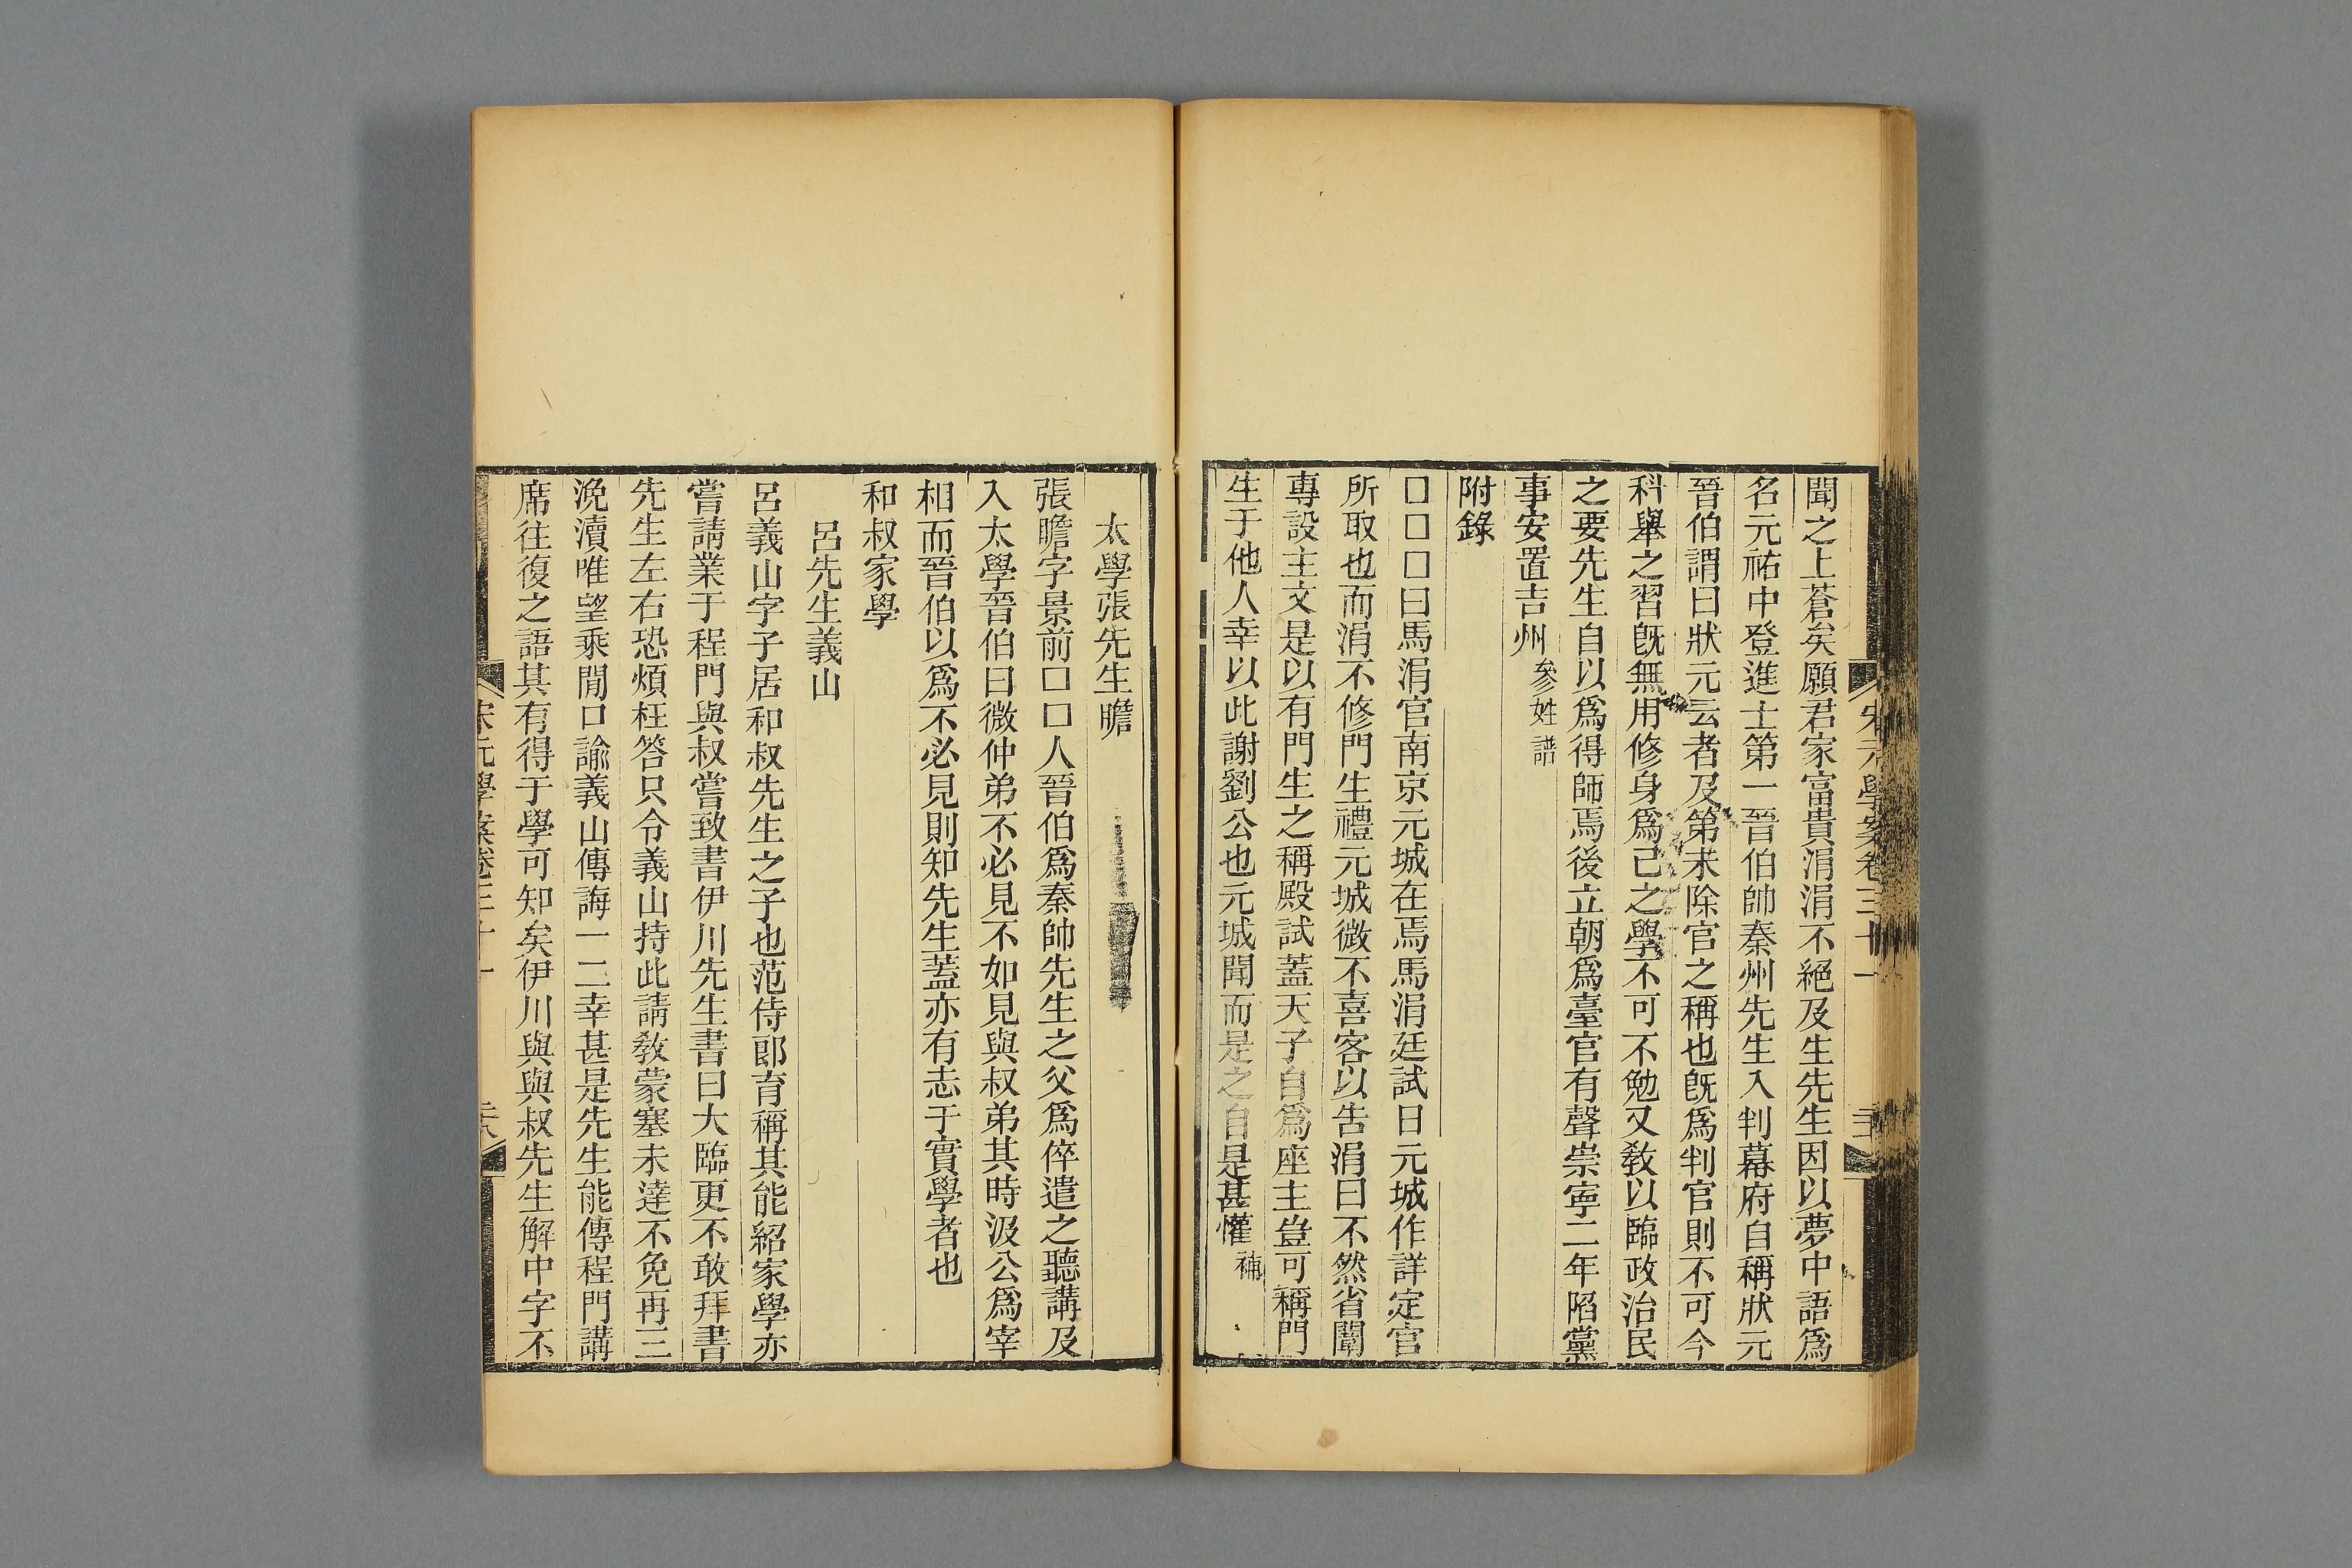 宋元學案卷三十一
聞之上蒼矣願君家富貴涓涓不絕及生先生因以夢中語爲
名元祐中登進士第一晉伯帥秦州先生入判幕府自稱狀元
晉伯謂曰狀元云者及第未除官之稱也旣爲判官則不可今
科舉之習旣無用修身爲己之學不可不勉又敎以臨政治民
之要先生自以爲得師焉後立朝爲臺官有聲崇寧二年陷黨
事安置吉州參姓譜
附錄
□□□曰馬涓官南京元城在焉馬涓廷試日元城作詳定官
所取也而涓不修門生禮元城微不喜客以告涓曰不然省闈
專設主文是以有門生之稱殿試蓋天子自爲座主豈可稱門
生于他人幸以此謝劉公也元城聞而是之自是甚懽補
太學張先生瞻
張瞻字景前□□人晉伯爲秦帥先生之父爲倅遣之聽講及
入太學晉伯曰微仲弟不必見不如見與叔弟其時汲公爲宰
相而晉伯以爲不必見則知先生蓋亦有志于實學者也
和叔家學
呂先生義山
呂義山字子居和叔先生之子也范侍郎育稱其能紹家學亦
嘗請業于程門與叔嘗致書伊川先生書曰大臨更不敢拜書
先生左右恐煩枉答只令義山持此請敎蒙塞未達不免再三
浼瀆唯望乘閒口諭義山傳誨一二幸甚是先生能傳程門講
席往復之語其有得于學可知矣伊川與與叔先生解中字不
宋元學案卷三十一